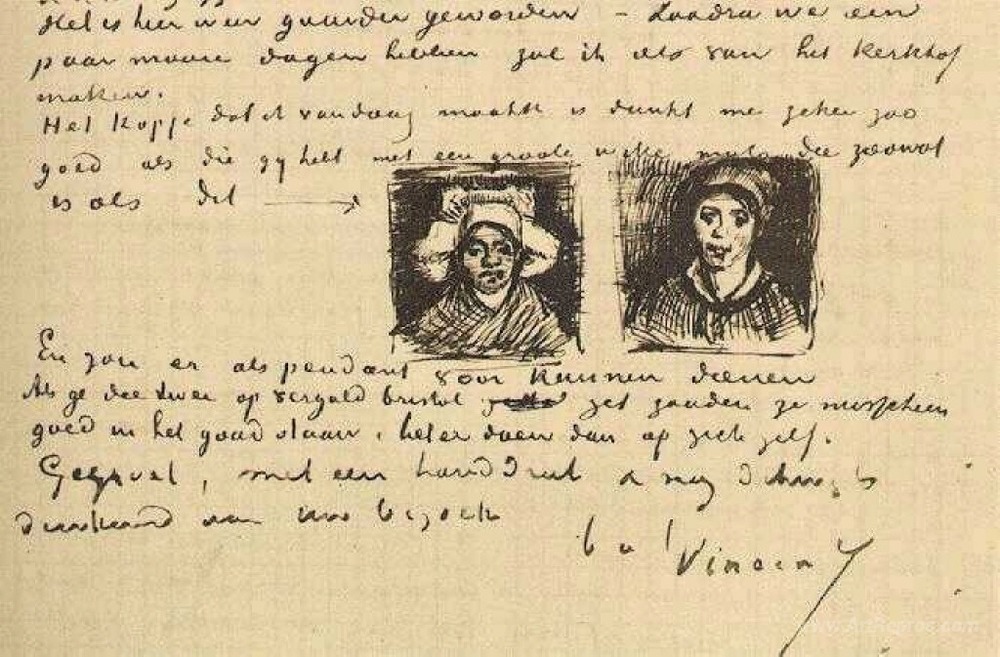 Het is hier weer guurder geworden – Zoodra we een
paar mooie dagen hebben zal ik iets van het kerkhof
maken.
Het kopje dat ik vandaag maakte is dunkt me zeker zoo
goed als die gy hebt met een groote witte muts die zoowat
is als dit
En zou er als pendant voor kunnen dienen
Als ge die twee op verguld bristol zet zouden ze misschien
goed in het goud staan, beter doen dan op zich zelf.
Gegroet, met een handdruk
dankend voor uw bezoek
b à t Vincent